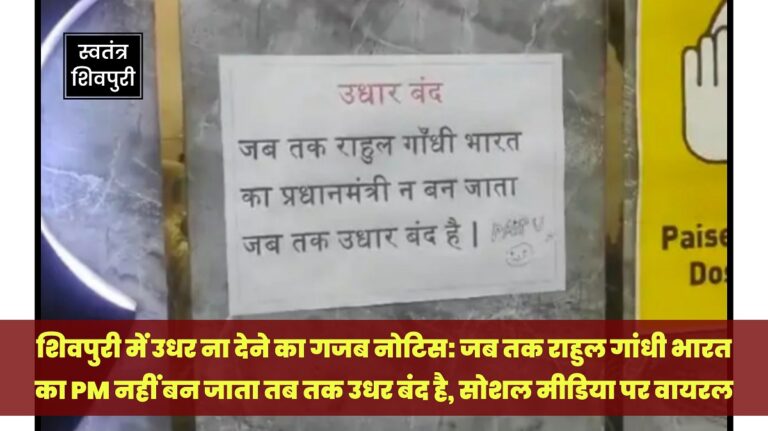 स्वतंत्र
शिवपुरी
उधार बंद
जब तक राहुल गाँधी भारत
का प्रधानमंत्री न बन जाता
जब तक उधार बंद है |
Paise
Dos
शिवपुरी में उधर ना देने का गजब नोटिस: जब तक राहुल गांधी भारत
का PM नहीं बन जाता तब तक उधर बंद है, सोशल मीडिया पर वायरल